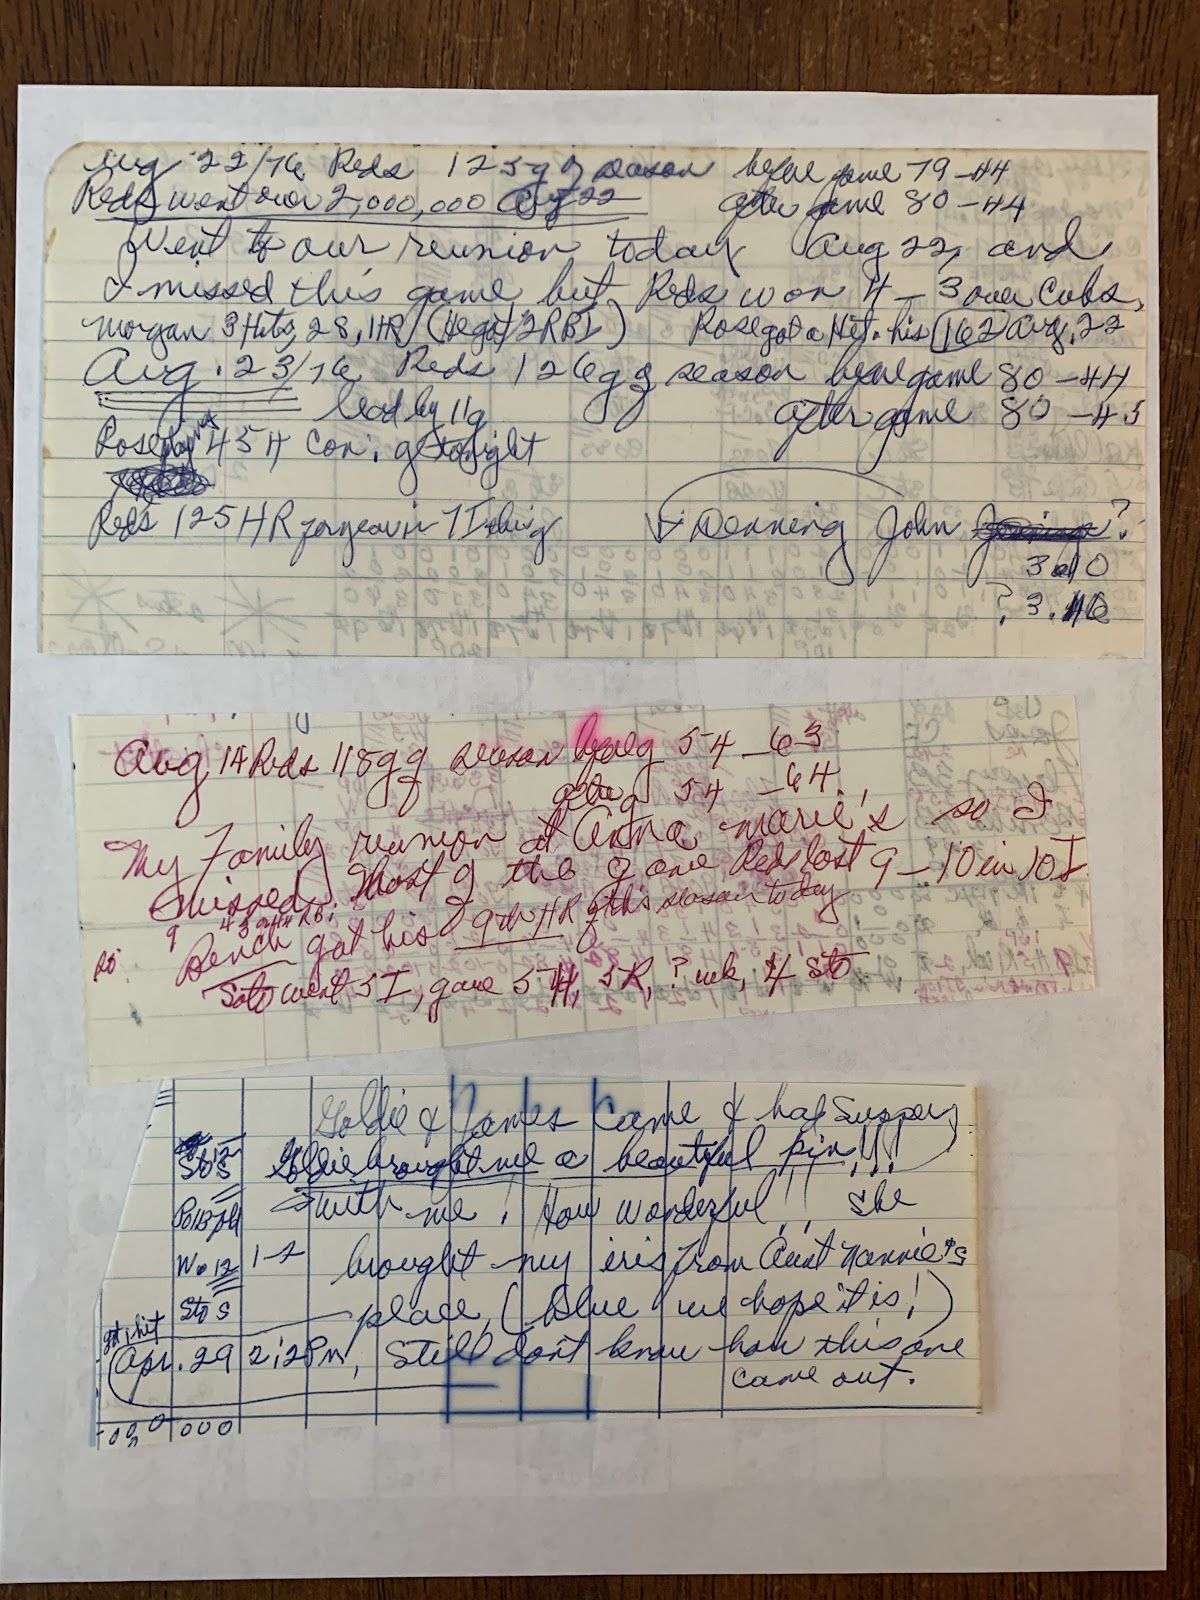 Aug 22/76 Reds 123 g of season before game 79-44
Reds went over 2,000,000 Aug 22 after game 80-44
Went to our reunion today Aug 22, and
I missed this game but Reds won 4-3 over Cubs,
Morgan 3 Hits, 2B, 1HR (He got 2RBI) Rose got a Hit. his 162 Aug. 22
Aug. 23/76 Reds 126 g of season before game 80-44
lead by 11g after game 80-45
Rose playing 454 con. g tonight
Reds 125 HR for year in 7I thing
Denning John ?
3 of 0
? 3.46
Aug 14 Reds 118 g of season before g 54-63
after g 54-64
My Family reunion at Anna marie's so I
missed Most of the game Reds lost 9-10 in 10 I
Bench got his 9th HR of this season today
Soto went 5 I, gave 5 H, 5R, ? wk, 4 Sto
Goldie & James Came & had Supper
Goldie brought me a beautiful pin!!!
with me! How wonderful!! She
Wo 12 1-2 brought my iris from Aunt Nannie's
Sto s place, (Blue we hope it is!)
got 1 hit
Apr. 29 2:12 Pm, Still dont know how this one
came out.
000